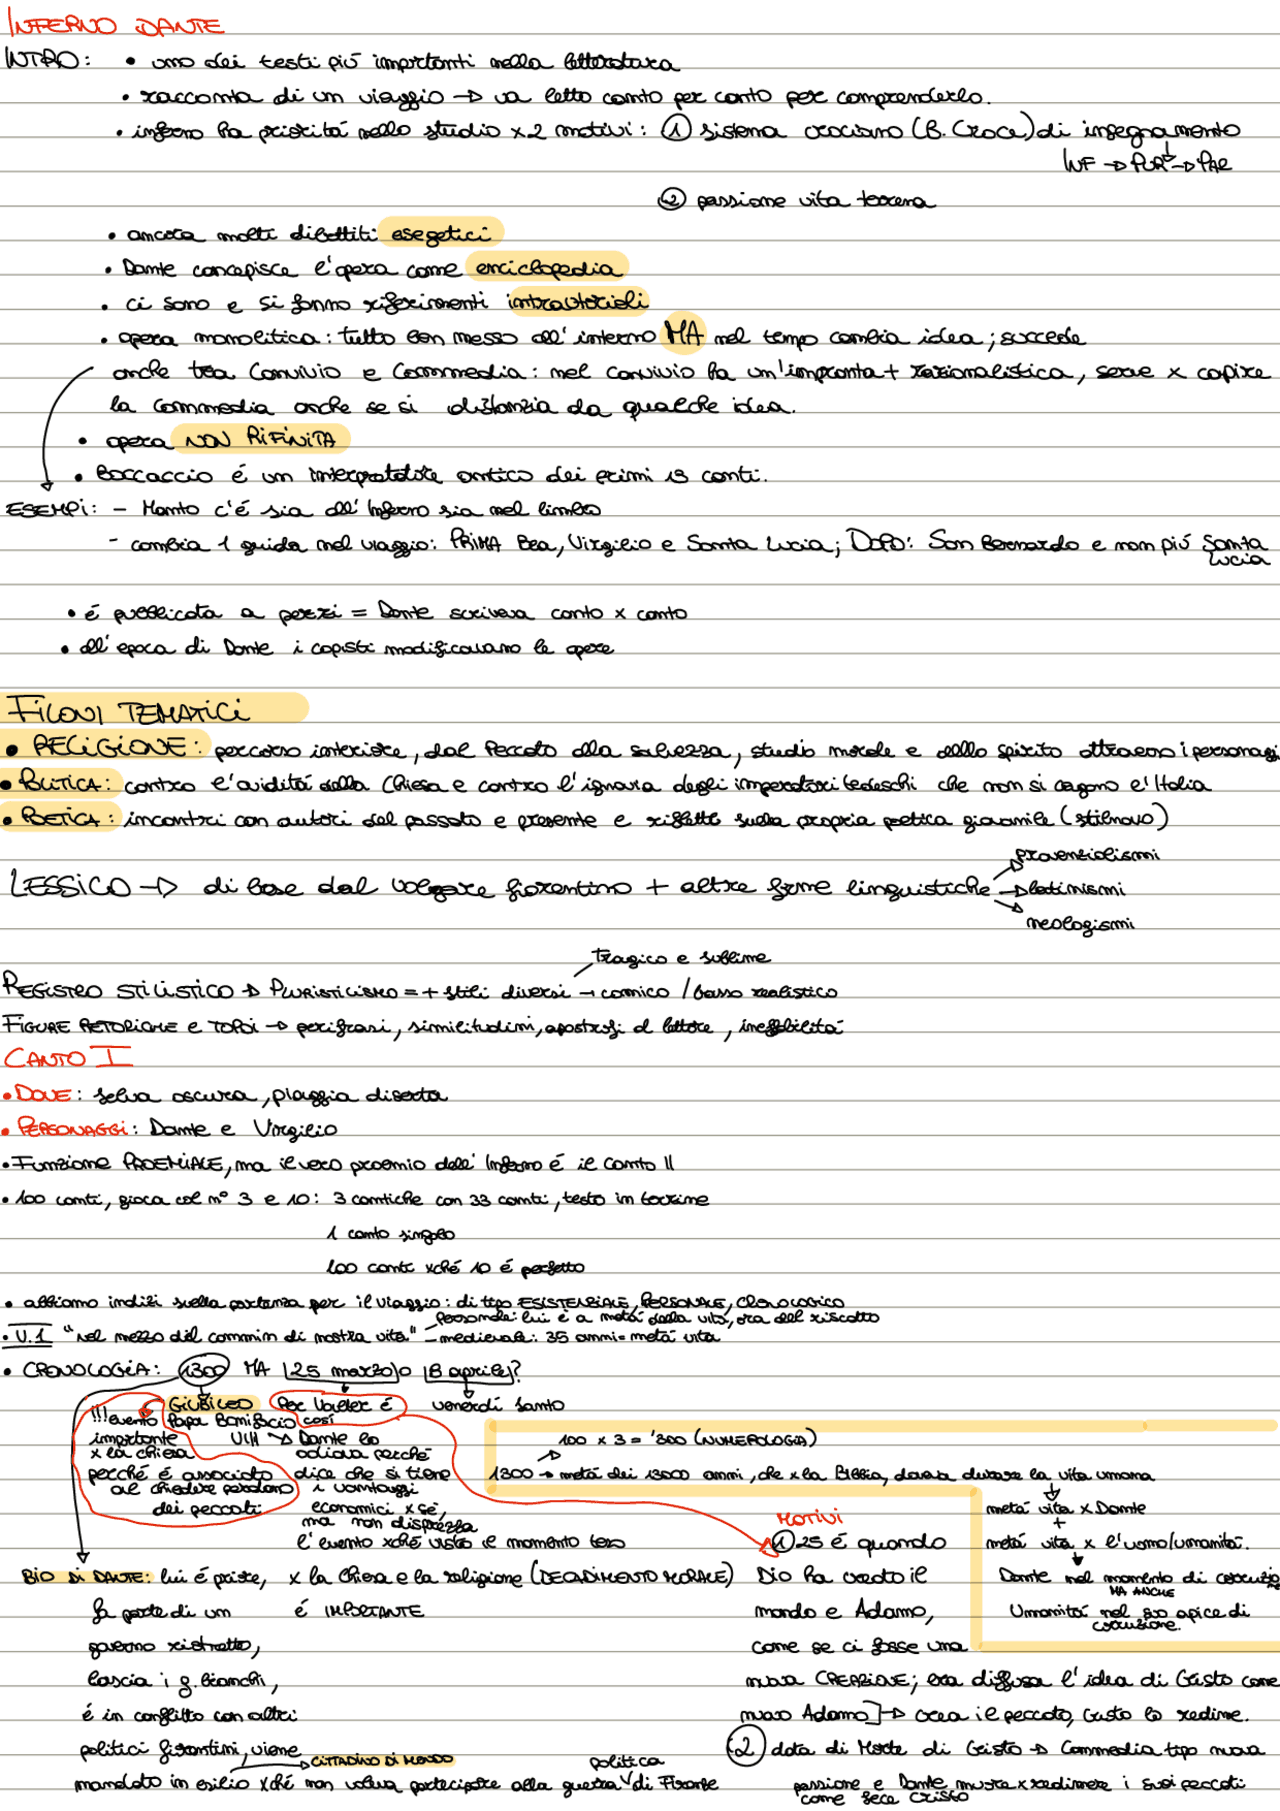 INFERNO DANTE
INTRO: • uno dei testi più importanti nella letteratura
• racconta di un viaggio → va letto canto per canto per comprenderlo.
• inferno ha priorità nello studio x 2 motivi: ① sistema crociano (B. Croce) di insegnamento
INF → PUR → PAR
② passione vita terrena
• ancora molti dibattiti esegetici
• Dante concepisce l'opera come enciclopedia
• ci sono e si fanno riferimenti intrautoriali
• opera monolitica: tutto ben messo all'interno MA nel tempo cambia idea; succede
anche tra Convivio e Commedia: nel convivio ha un'impronta + razionalistica, serve x capire
la commedia anche se si distanzia da qualche idea.
• opera NON RIFINITA
• Boccaccio é un interpretatore antico dei primi 13 canti.
ESEMPI: - Manto c'é sia all'Inferno sia nel limbo
- cambia 1 guida nel viaggio: PRIMA Bea, Virgilio e Santa Lucia; DOPO: San Bernardo e non più Santa
Lucia
• é pubblicata a pezzi = Dante scriveva canto x canto
• all'epoca di Dante i copisti modificavano le opere
FILONI TEMATICI
• RELIGIONE: percorso interiore, dal Peccato alla salvezza, studio morale e dello spirito attraverso i personaggi
• POLITICA: contro l'avidità della Chiesa e contro l'ignavia degli imperatori tedeschi che non si cagano l'Italia
• POETICA: incontri con autori del passato e presente e riflette sulla propria poetica giovanile (stilnovo)
provenzialismi
LESSICO → di base dal volgare fiorentino + altre forme linguistiche → latinismi
neologismi
tragico e sublime
REGISTRO STILISTICO → PLURISTILISMO = + stili diversi → comico / basso realistico
FIGURE RETORICHE e TOPOI → perifrasi, similitudini, apostrofi al lettore, ineffabilità
CANTO I
• DOVE: selva oscura, piaggia diserta
• PERSONAGGI: Dante e Virgilio
• Funzione PROEMIALE, ma il vero proemio dell'Inferno é il canto II
• 100 canti, gioca col n° 3 e 10: 3 cantiche con 33 canti, testo in terzine
1 canto singolo
100 canti xché 10 é perfetto
• abbiamo indizi sulla partenza per il viaggio: di tipo ESISTENZIALE, PERSONALE, CRONOLOGICO
personale: lui é a metà della vita, ora del riscatto
• V.1 "nel mezzo del cammin di nostra vita" - medievale: 35 anni = metà vita
• CRONOLOGIA: 1300 MA 25 marzo o 8 aprile?
GIUBILEO Per Walter é venerdì santo
!!! evento Papa Bonifacio così
importante VIII → Dante lo 100 x 3 = 300 (NUMEROLOGIA)
x la chiesa odiava perché
perché é associato dice che si tiene 1300 → metà dei 13000 anni, che x la Bibbia, doveva durare la vita umana
al chiedere perdono i vantaggi
dei peccati economici x sé, metà vita x Dante
ma non disprezza MOTIVI +
l'evento xché visto il momento terr ① 25 é quando metà vita x l'uomo/umanità.
BIO DI DANTE: lui é priore, x la Chiesa e la religione (DECADIMENTO MORALE) Dio ha creato il Dante nel momento di corruzione
MA ANCHE
fa parte di un é IMPORTANTE mondo e Adamo, Umanità nel suo apice di
corruzione.
governo ristretto, come se ci fosse una
lascia i g. bianchi, nuova CREAZIONE; era diffusa l'idea di Cristo come
é in conflitto con altri nuovo Adamo → crea il peccato, Cristo lo redime.
politici fiorentini, viene CITTADINO DI MONDO politica ② data di Morte di Cristo → Commedia tipo nuova
mandato in esilio xché non voleva partecipare alla guerra di Firenze passione e Dante muore x redimere i suoi peccati
come fece CRISTO